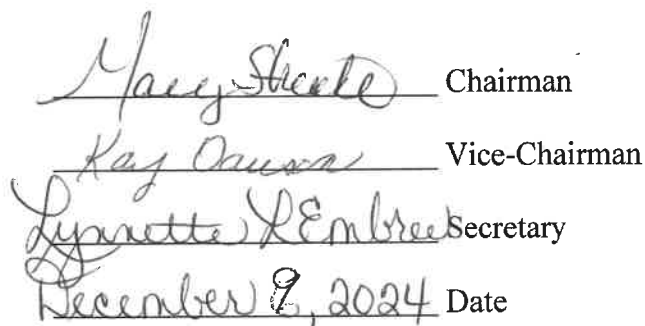 Mary Steele Chairman
Kay Dawson Vice-Chairman
Lynnette L Embree Secretary
December 9, 2024 Date